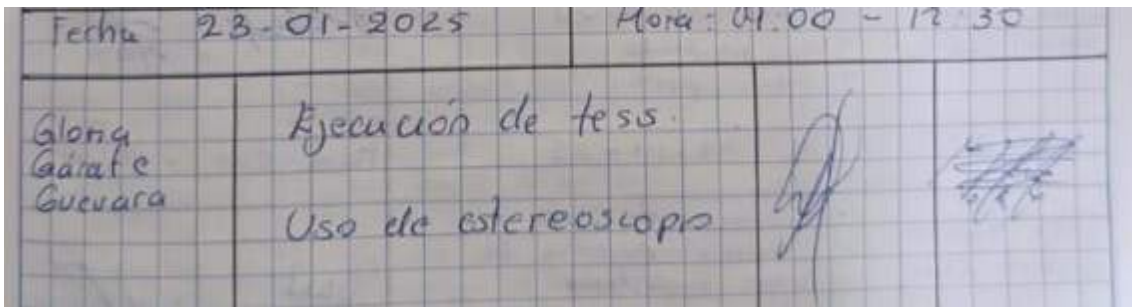 Fecha 23-01-2025 Hora: 09:00 - 12:30
Gloria
Gárate
Guevara
Ejecución de tesis.
Uso de estereoscopio